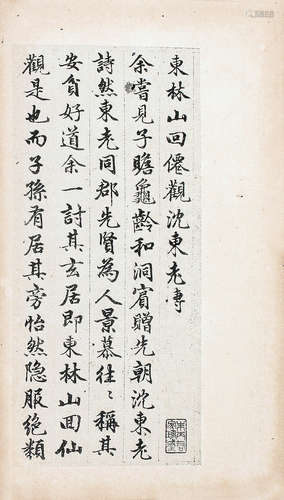 東林山回僊觀沈東老傳
余嘗見子瞻龜齡和洞賓贈先朝沈東老
詩然東老同郡先賢為人景慕往〻稱其
安貧好道余一討其玄居即東林山回仙
觀是也而子孫有居其旁怡然隐服絕類